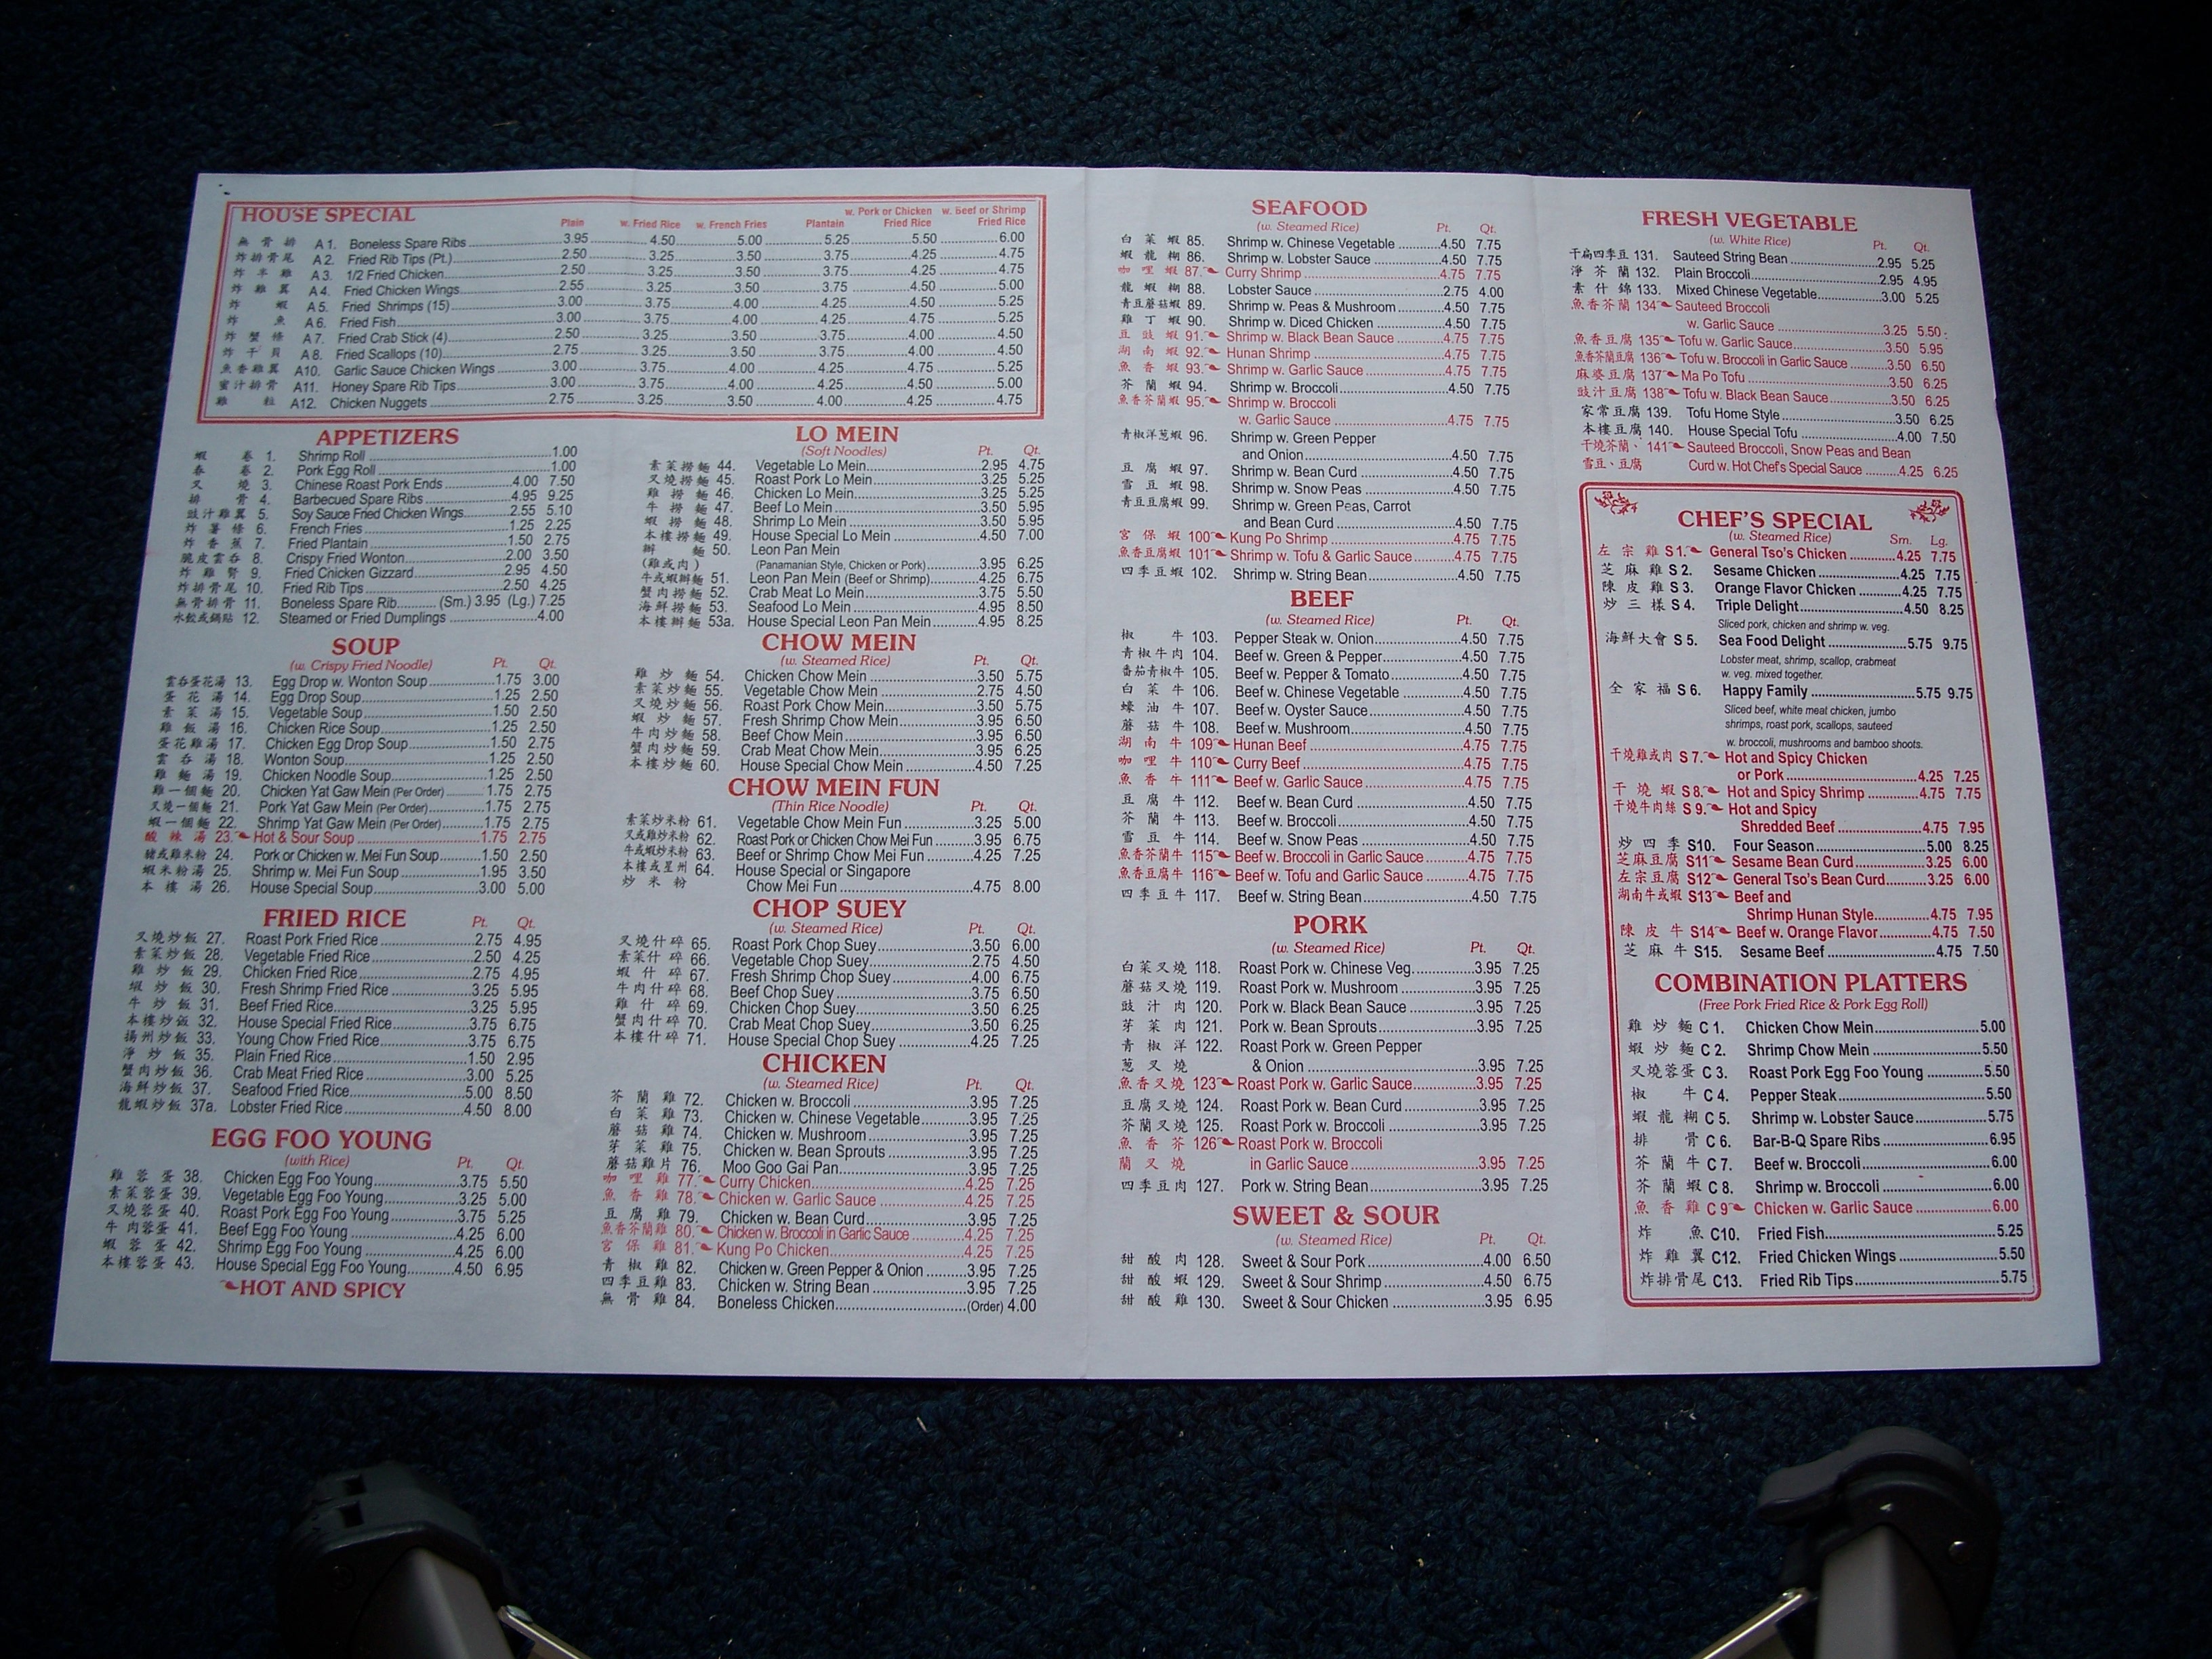 HOUSE SPECIAL
Plain w. Fried Rice w. French Fries Plantain w. Pork or Chicken Fried Rice w. Beef or Shrimp Fried Rice
無骨排 A 1. Boneless Spare Ribs 3.95 4.50 5.00 5.25 5.50 6.00
炸排骨尾 A 2. Fried Rib Tips (Pt.) 2.50 3.25 3.50 3.75 4.25 4.75
炸半雞 A 3. 1/2 Fried Chicken 2.50 3.25 3.50 3.75 4.25 4.75
炸雞翼 A 4. Fried Chicken Wings 2.55 3.25 3.50 3.75 4.50 5.00
炸蝦 A 5. Fried Shrimps (15) 3.00 3.75 4.00 4.25 4.50 5.25
炸魚 A 6. Fried Fish 3.00 3.75 4.00 4.25 4.75 5.25
炸蟹條 A 7. Fried Crab Stick (4) 2.50 3.25 3.50 3.75 4.00 4.50
炸干貝 A 8. Fried Scallops (10) 2.75 3.25 3.50 3.75 4.00 4.50
魚香雞翼 A10. Garlic Sauce Chicken Wings 3.00 3.75 4.00 4.25 4.75 5.25
蜜汁排骨 A11. Honey Spare Rib Tips 3.00 3.75 4.00 4.25 4.50 5.00
雞粒 A12. Chicken Nuggets 2.75 3.25 3.50 4.00 4.25 4.75
APPETIZERS
蝦卷 1. Shrimp Roll 1.00
春卷 2. Pork Egg Roll 1.00
叉燒 3. Chinese Roast Pork Ends 4.00 7.50
排骨 4. Barbecued Spare Ribs 4.95 9.25
豉汁雞翼 5. Soy Sauce Fried Chicken Wings 2.55 5.10
炸薯條 6. French Fries 1.25 2.25
炸香蕉 7. Fried Plantain 1.50 2.75
脆皮雲吞 8. Crispy Fried Wonton 2.00 3.50
炸雞腎 9. Fried Chicken Gizzard 2.95 4.50
炸排骨尾 10. Fried Rib Tips 2.50 4.25
無骨排骨 11. Boneless Spare Rib (Sm.) 3.95 (Lg.) 7.25
水餃或鍋貼 12. Steamed or Fried Dumplings 4.00
SOUP
(w. Crispy Fried Noodle) Pt. Qt.
雲吞蛋花湯 13. Egg Drop w. Wonton Soup 1.75 3.00
蛋花湯 14. Egg Drop Soup 1.25 2.50
素菜湯 15. Vegetable Soup 1.50 2.50
雞飯湯 16. Chicken Rice Soup 1.25 2.50
蛋花雞湯 17. Chicken Egg Drop Soup 1.50 2.75
雲吞湯 18. Wonton Soup 1.25 2.50
雞麵湯 19. Chicken Noodle Soup 1.25 2.50
雞一個麵 20. Chicken Yat Gaw Mein (Per Order) 1.75 2.75
叉燒一個麵 21. Pork Yat Gaw Mein (Per Order) 1.75 2.75
蝦一個麵 22. Shrimp Yat Gaw Mein (Per Order) 1.75 2.75
酸辣湯 23. Hot & Sour Soup 1.75 2.75
豬或雞米粉 24. Pork or Chicken w. Mei Fun Soup 1.50 2.50
蝦米粉湯 25. Shrimp w. Mei Fun Soup 1.95 3.50
本樓湯 26. House Special Soup 3.00 5.00
FRIED RICE Pt. Qt.
叉燒炒飯 27. Roast Pork Fried Rice 2.75 4.95
素菜炒飯 28. Vegetable Fried Rice 2.50 4.25
雞炒飯 29. Chicken Fried Rice 2.75 4.95
蝦炒飯 30. Fresh Shrimp Fried Rice 3.25 5.95
牛炒飯 31. Beef Fried Rice 3.25 5.95
本樓炒飯 32. House Special Fried Rice 3.75 6.75
揚州炒飯 33. Young Chow Fried Rice 3.75 6.75
淨炒飯 35. Plain Fried Rice 1.50 2.95
蟹肉炒飯 36. Crab Meat Fried Rice 3.00 5.25
海鮮炒飯 37. Seafood Fried Rice 5.00 8.50
龍蝦炒飯 37a. Lobster Fried Rice 4.50 8.00
EGG FOO YOUNG
(with Rice) Pt. Qt.
雞蓉蛋 38. Chicken Egg Foo Young 3.75 5.50
素菜蓉蛋 39. Vegetable Egg Foo Young 3.25 5.00
叉燒蓉蛋 40. Roast Pork Egg Foo Young 3.75 5.25
牛肉蓉蛋 41. Beef Egg Foo Young 4.25 6.00
蝦蓉蛋 42. Shrimp Egg Foo Young 4.25 6.00
本樓蓉蛋 43. House Special Egg Foo Young 4.50 6.95
HOT AND SPICY
LO MEIN
(Soft Noodles) Pt. Qt.
素菜撈麵 44. Vegetable Lo Mein 2.95 4.75
叉燒撈麵 45. Roast Pork Lo Mein 3.25 5.25
雞撈麵 46. Chicken Lo Mein 3.25 5.25
牛撈麵 47. Beef Lo Mein 3.50 5.95
蝦撈麵 48. Shrimp Lo Mein 3.50 5.95
本樓撈麵 49. House Special Lo Mein 4.50 7.00
辦麵 50. Leon Pan Mein
(雞或肉) (Panamanian Style, Chicken or Pork) 3.95 6.25
牛或蝦辦麵 51. Leon Pan Mein (Beef or Shrimp) 4.25 6.75
蟹肉撈麵 52. Crab Meat Lo Mein 3.75 5.50
海鮮撈麵 53. Seafood Lo Mein 4.95 8.50
本樓辦麵 53a. House Special Leon Pan Mein 4.95 8.25
CHOW MEIN
(w. Steamed Rice) Pt. Qt.
雞炒麵 54. Chicken Chow Mein 3.50 5.75
素菜炒麵 55. Vegetable Chow Mein 2.75 4.50
叉燒炒麵 56. Roast Pork Chow Mein 3.50 5.75
蝦炒麵 57. Fresh Shrimp Chow Mein 3.95 6.50
牛肉炒麵 58. Beef Chow Mein 3.95 6.50
蟹肉炒麵 59. Crab Meat Chow Mein 3.95 6.25
本樓炒麵 60. House Special Chow Mein 4.50 7.25
CHOW MEIN FUN
(Thin Rice Noodle) Pt. Qt.
素菜炒米粉 61. Vegetable Chow Mein Fun 3.25 5.00
叉或雞炒米粉 62. Roast Pork or Chicken Chow Mei Fun 3.95 6.75
牛或蝦炒米粉 63. Beef or Shrimp Chow Mei Fun 4.25 7.25
本樓或星州 64. House Special or Singapore
炒米粉 Chow Mei Fun 4.75 8.00
CHOP SUEY
(w. Steamed Rice) Pt. Qt.
叉燒什碎 65. Roast Pork Chop Suey 3.50 6.00
素菜什碎 66. Vegetable Chop Suey 2.75 4.50
蝦什碎 67. Fresh Shrimp Chop Suey 4.00 6.75
牛肉什碎 68. Beef Chop Suey 3.75 6.50
雞什碎 69. Chicken Chop Suey 3.50 6.25
蟹肉什碎 70. Crab Meat Chop Suey 3.50 6.25
本樓什碎 71. House Special Chop Suey 4.25 7.25
CHICKEN
(w. Steamed Rice) Pt. Qt.
芥蘭雞 72. Chicken w. Broccoli 3.95 7.25
白菜雞 73. Chicken w. Chinese Vegetable 3.95 7.25
蘑菇雞 74. Chicken w. Mushroom 3.95 7.25
芽菜雞 75. Chicken w. Bean Sprouts 3.95 7.25
蘑菇雞片 76. Moo Goo Gai Pan 3.95 7.25
咖哩雞 77. Curry Chicken 4.25 7.25
魚香雞 78. Chicken w. Garlic Sauce 4.25 7.25
豆腐雞 79. Chicken w. Bean Curd 3.95 7.25
魚香芥蘭雞 80. Chicken w. Broccoli in Garlic Sauce 4.25 7.25
宮保雞 81. Kung Po Chicken 4.25 7.25
青椒雞 82. Chicken w. Green Pepper & Onion 3.95 7.25
四季豆雞 83. Chicken w. String Bean 3.95 7.25
無骨雞 84. Boneless Chicken (Order) 4.00
SEAFOOD
(w. Steamed Rice) Pt. Qt.
白菜蝦 85. Shrimp w. Chinese Vegetable 4.50 7.75
蝦龍糊 86. Shrimp w. Lobster Sauce 4.50 7.75
咖哩蝦 87. Curry Shrimp 4.75 7.75
龍蝦糊 88. Lobster Sauce 2.75 4.00
青豆蘑菇蝦 89. Shrimp w. Peas & Mushroom 4.50 7.75
雞丁蝦 90. Shrimp w. Diced Chicken 4.50 7.75
豆豉蝦 91. Shrimp w. Black Bean Sauce 4.75 7.75
湖南蝦 92. Hunan Shrimp 4.75 7.75
魚香蝦 93. Shrimp w. Garlic Sauce 4.75 7.75
芥蘭蝦 94. Shrimp w. Broccoli 4.50 7.75
魚香芥蘭蝦 95. Shrimp w. Broccoli
w. Garlic Sauce 4.75 7.75
青椒洋葱蝦 96. Shrimp w. Green Pepper
and Onion 4.50 7.75
豆腐蝦 97. Shrimp w. Bean Curd 4.50 7.75
雪豆蝦 98. Shrimp w. Snow Peas 4.50 7.75
青豆豆腐蝦 99. Shrimp w. Green Peas, Carrot
and Bean Curd 4.50 7.75
宮保蝦 100. Kung Po Shrimp 4.75 7.75
魚香豆腐蝦 101. Shrimp w. Tofu & Garlic Sauce 4.75 7.75
四季豆蝦 102. Shrimp w. String Bean 4.50 7.75
BEEF
(w. Steamed Rice) Pt. Qt.
椒牛 103. Pepper Steak w. Onion 4.50 7.75
青椒牛肉 104. Beef w. Green & Pepper 4.50 7.75
番茄青椒牛 105. Beef w. Pepper & Tomato 4.50 7.75
白菜牛 106. Beef w. Chinese Vegetable 4.50 7.75
蠔油牛 107. Beef w. Oyster Sauce 4.50 7.75
蘑菇牛 108. Beef w. Mushroom 4.50 7.75
湖南牛 109 Hunan Beef 4.75 7.75
咖哩牛 110 Curry Beef 4.75 7.75
魚香牛 111 Beef w. Garlic Sauce 4.75 7.75
豆腐牛 112. Beef w. Bean Curd 4.50 7.75
芥蘭牛 113. Beef w. Broccoli 4.50 7.75
雪豆牛 114. Beef w. Snow Peas 4.50 7.75
魚香芥蘭牛 115 Beef w. Broccoli in Garlic Sauce 4.75 7.75
魚香豆腐牛 116 Beef w. Tofu and Garlic Sauce 4.75 7.75
四季豆牛 117. Beef w. String Bean 4.50 7.75
PORK
(w. Steamed Rice) Pt. Qt.
白菜叉燒 118. Roast Pork w. Chinese Veg. 3.95 7.25
蘑菇叉燒 119. Roast Pork w. Mushroom 3.95 7.25
豉汁肉 120. Pork w. Black Bean Sauce 3.95 7.25
芽菜肉 121. Pork w. Bean Sprouts 3.95 7.25
青椒洋 122. Roast Pork w. Green Pepper
葱叉燒 & Onion 3.95 7.25
魚香叉燒 123 Roast Pork w. Garlic Sauce 3.95 7.25
豆腐叉燒 124. Roast Pork w. Bean Curd 3.95 7.25
芥蘭叉燒 125. Roast Pork w. Broccoli 3.95 7.25
魚香芥 126 Roast Pork w. Broccoli
蘭叉燒 in Garlic Sauce 3.95 7.25
四季豆肉 127. Pork w. String Bean 3.95 7.25
SWEET & SOUR
(w. Steamed Rice) Pt. Qt.
甜酸肉 128. Sweet & Sour Pork 4.00 6.50
甜酸蝦 129. Sweet & Sour Shrimp 4.50 6.75
甜酸雞 130. Sweet & Sour Chicken 3.95 6.95
FRESH VEGETABLE
(w. White Rice) Pt. Qt.
干扁四季豆 131. Sauteed String Bean 2.95 5.25
淨芥蘭 132. Plain Broccoli 2.95 4.95
素什錦 133. Mixed Chinese Vegetable 3.00 5.25
魚香芥蘭 134 Sauteed Broccoli
w. Garlic Sauce 3.25 5.50
魚香豆腐 135 Tofu w. Garlic Sauce 3.50 5.95
魚香芥蘭豆腐 136 Tofu w. Broccoli in Garlic Sauce 3.50 6.50
麻婆豆腐 137 Ma Po Tofu 3.50 6.25
豉汁豆腐 138 Tofu w. Black Bean Sauce 3.50 6.25
家常豆腐 139. Tofu Home Style 3.50 6.25
本樓豆腐 140. House Special Tofu 4.00 7.50
干燒芥蘭、 141 Sauteed Broccoli, Snow Peas and Bean
雪豆、豆腐 Curd w. Hot Chef's Special Sauce 4.25 6.25
CHEF'S SPECIAL
(w. Steamed Rice) Sm. Lg.
左宗雞 S 1. General Tso's Chicken 4.25 7.75
芝麻雞 S 2. Sesame Chicken 4.25 7.75
陳皮雞 S 3. Orange Flavor Chicken 4.25 7.75
炒三樣 S 4. Triple Delight 4.50 8.25
Sliced pork, chicken and shrimp w. veg.
海鮮大會 S 5. Sea Food Delight 5.75 9.75
Lobster meat, shrimp, scallop, crabmeat
w. veg. mixed together.
全家福 S 6. Happy Family 5.75 9.75
Sliced beef, white meat chicken, jumbo
shrimps, roast pork, scallops, sauteed
w. broccoli, mushrooms and bamboo shoots.
干燒雞或肉 S 7. Hot and Spicy Chicken
or Pork 4.25 7.25
干燒蝦 S 8. Hot and Spicy Shrimp 4.75 7.75
干燒牛肉絲 S 9. Hot and Spicy
Shredded Beef 4.75 7.95
炒四季 S10. Four Season 5.00 8.25
芝麻豆腐 S11 Sesame Bean Curd 3.25 6.00
左宗豆腐 S12 General Tso's Bean Curd 3.25 6.00
湖南牛或蝦 S13 Beef and
Shrimp Hunan Style 4.75 7.95
陳皮牛 S14 Beef w. Orange Flavor 4.75 7.50
芝麻牛 S15. Sesame Beef 4.75 7.50
COMBINATION PLATTERS
(Free Pork Fried Rice & Pork Egg Roll)
雞炒麵 C 1. Chicken Chow Mein 5.00
蝦炒麵 C 2. Shrimp Chow Mein 5.50
叉燒蓉蛋 C 3. Roast Pork Egg Foo Young 5.50
椒牛 C 4. Pepper Steak 5.50
蝦龍糊 C 5. Shrimp w. Lobster Sauce 5.75
排骨 C 6. Bar-B-Q Spare Ribs 6.95
芥蘭牛 C 7. Beef w. Broccoli 6.00
芥蘭蝦 C 8. Shrimp w. Broccoli 6.00
魚香雞 C 9 Chicken w. Garlic Sauce 6.00
炸魚 C10. Fried Fish 5.25
炸雞翼 C12. Fried Chicken Wings 5.50
炸排骨尾 C13. Fried Rib Tips 5.75